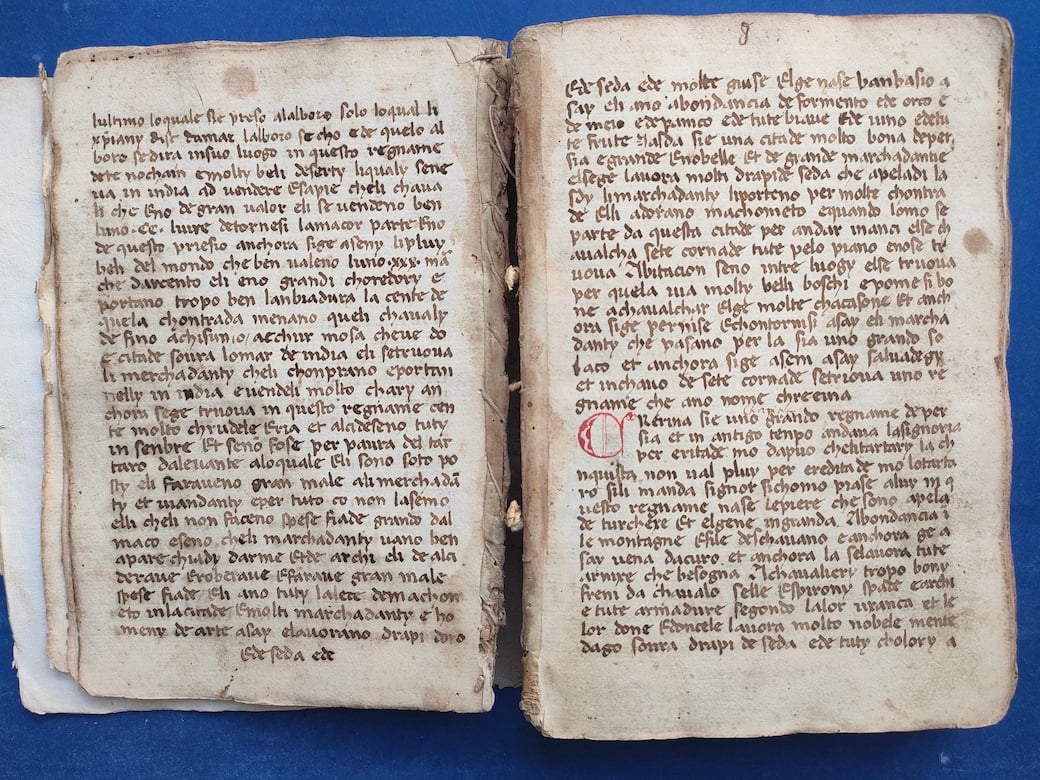 lultimo loquale sie preso alalboro solo loqual li
xpiany dise damar lalboro secho ede quelo al
boro sedira insuo luogo in questo regname
dete nochain emolty beli deserty liqualy sene
va in india ad vendere Esapie cheli chava
li che Eno de gran valor eli se vendeno ben
luno .CC. livre detornesi lamaçor parte Eno
de questo priesio anchora sige aseny lipluy
beli del mondo che ben valeno luno xxx mar
che darcento eli eno grandi choredory e
portano tropo ben lanbladura la cente de
quela chontrada menano queli chavaly
de fino achisi aechur mosa cheve do
e citade soura lomar de india eli setruova
li merchadanty cheli chonprano eportan
nelly in india evendeli molto chary an
chora sege truova in questo regname cen
te molto chrudele Eria et alcideseno tuty
in senbre Et seno fose per paura del tar
taro dalevante aloquale Eli sono soto po
sty eli faraveno gran male ali merchadan
ty et viandanty eper tuto co non laseno
elli cheli non faceno spese fiade grando dal
maço eseno cheli marchadanty vano ben
aparechiady darme Etde archi eli de alci
derave Eroberave Efarave gran male
spese fiade Eli ano tuty lalece demachom
eto inlacitade Emolti marchadanty e ho
meny de arte asay elavorano drapi doro
Ede seda ede
8
Ede seda ede molte guise Elge nase banbasio a
say eli ano abondancia de formento ede orço e
de meio edepanço ede tute biave Ede vino edetu
te frute Jasda sie una citade molto bona deper
sia egrande Enobelle Et de grande marchadantie
Elsege lavora molti drapi de seda che apeladi la
sdy limarchadanty liporteno per molte chontra
de Elli adorano machometo equando lomo se
parte da questa citade per andar inanci else ch
avalcha sete cornade tute pelo piano enose tr
uova Abitacion seno intre luogy else truova
per quela via molty belli boschi epome si bo
ne achavalchar Elge molte chaçasone Et anch
ora sige pernise Echontornisi asay eli marcha
danty che pasano per la sia uno grando so
laço et anchora sige aseni asay salvadegy
et inchavo de sete cornade setruova uno re
gname che ano nome chrerma
CRerma sie uno grando regname de per
sia et in antigo tenpo andava lasignoria
per eritade mo dapuo chelitartary la ch
nquista non val pluy per eredita de mo lotarta
ro sili manda signor sichomo piase aluy in q
uesto regname nase lepiere che sono apela
de turchere Et elgene ingranda Abondancia i
le montagne Efile deschavano eanchora ge a
say vena daçuro et anchora la selavora tute
arnixe che besogna Achavalieri tropo bony
freni da chavalo selle Espirony spade earchi
e tute armadure segondo lalor usança et le
lor done Edoncele lavora molto nobele mente
dago soura drapi de seda ede tuty cholory a